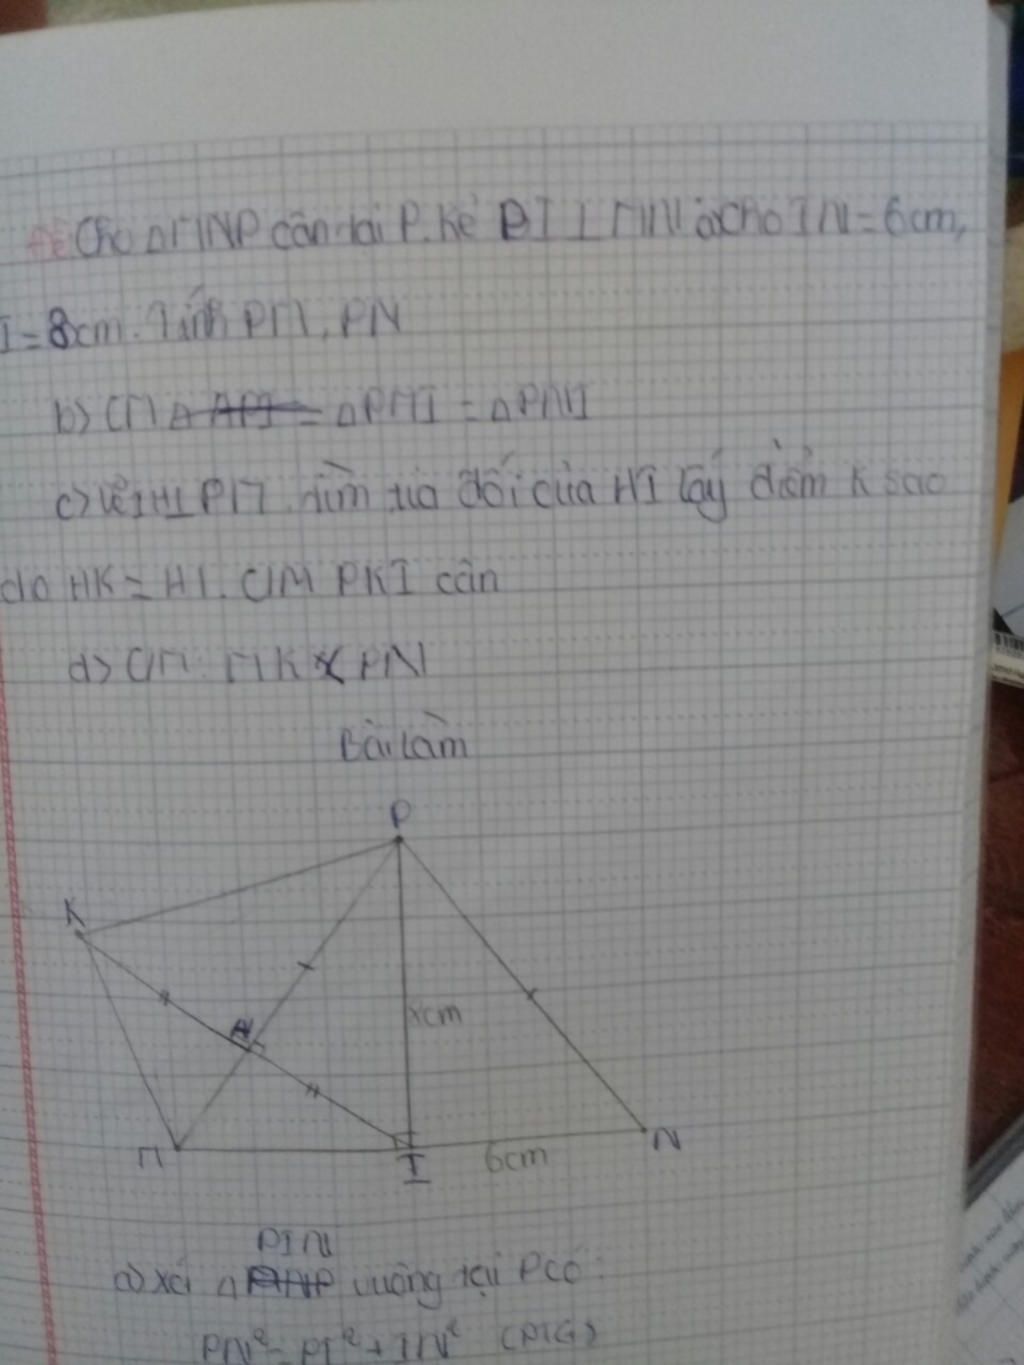 Đề Cho Δ MNP cân tại P. Kẻ PI ⊥ MN a) Cho IN = 6cm,
I = 8cm. Tính PM, PN
b) CM Δ PMI = Δ PNI
c) Vẽ IH ⊥ PM. đối của HI lấy điểm K sao
cho HK = HI. CM PKI cân
d) CM: MK < PN
Bài làm
P
K
H
8cm
M
I
6cm
N
PIN
a) xét Δ vuông tại P có:
PN² = PI² + IN²